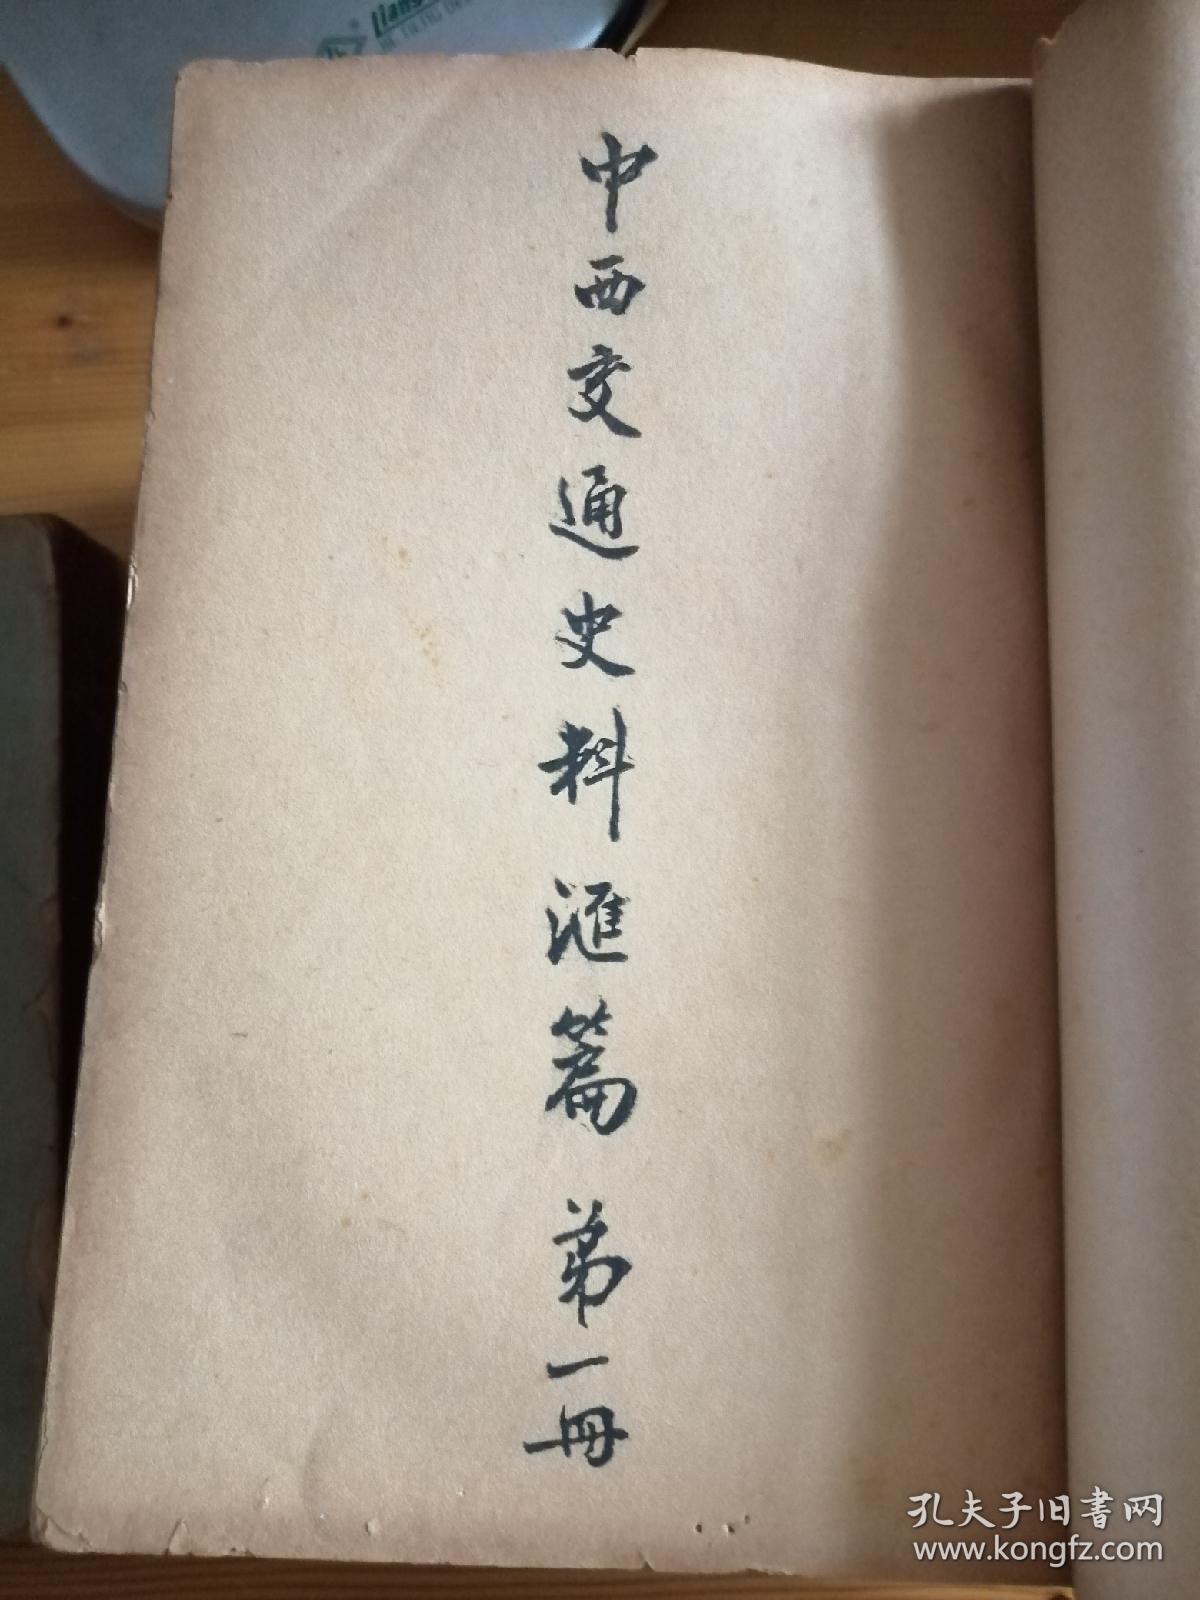 中西交通史料滙篇 第一冊
孔夫子旧書网
www.kongfz.com